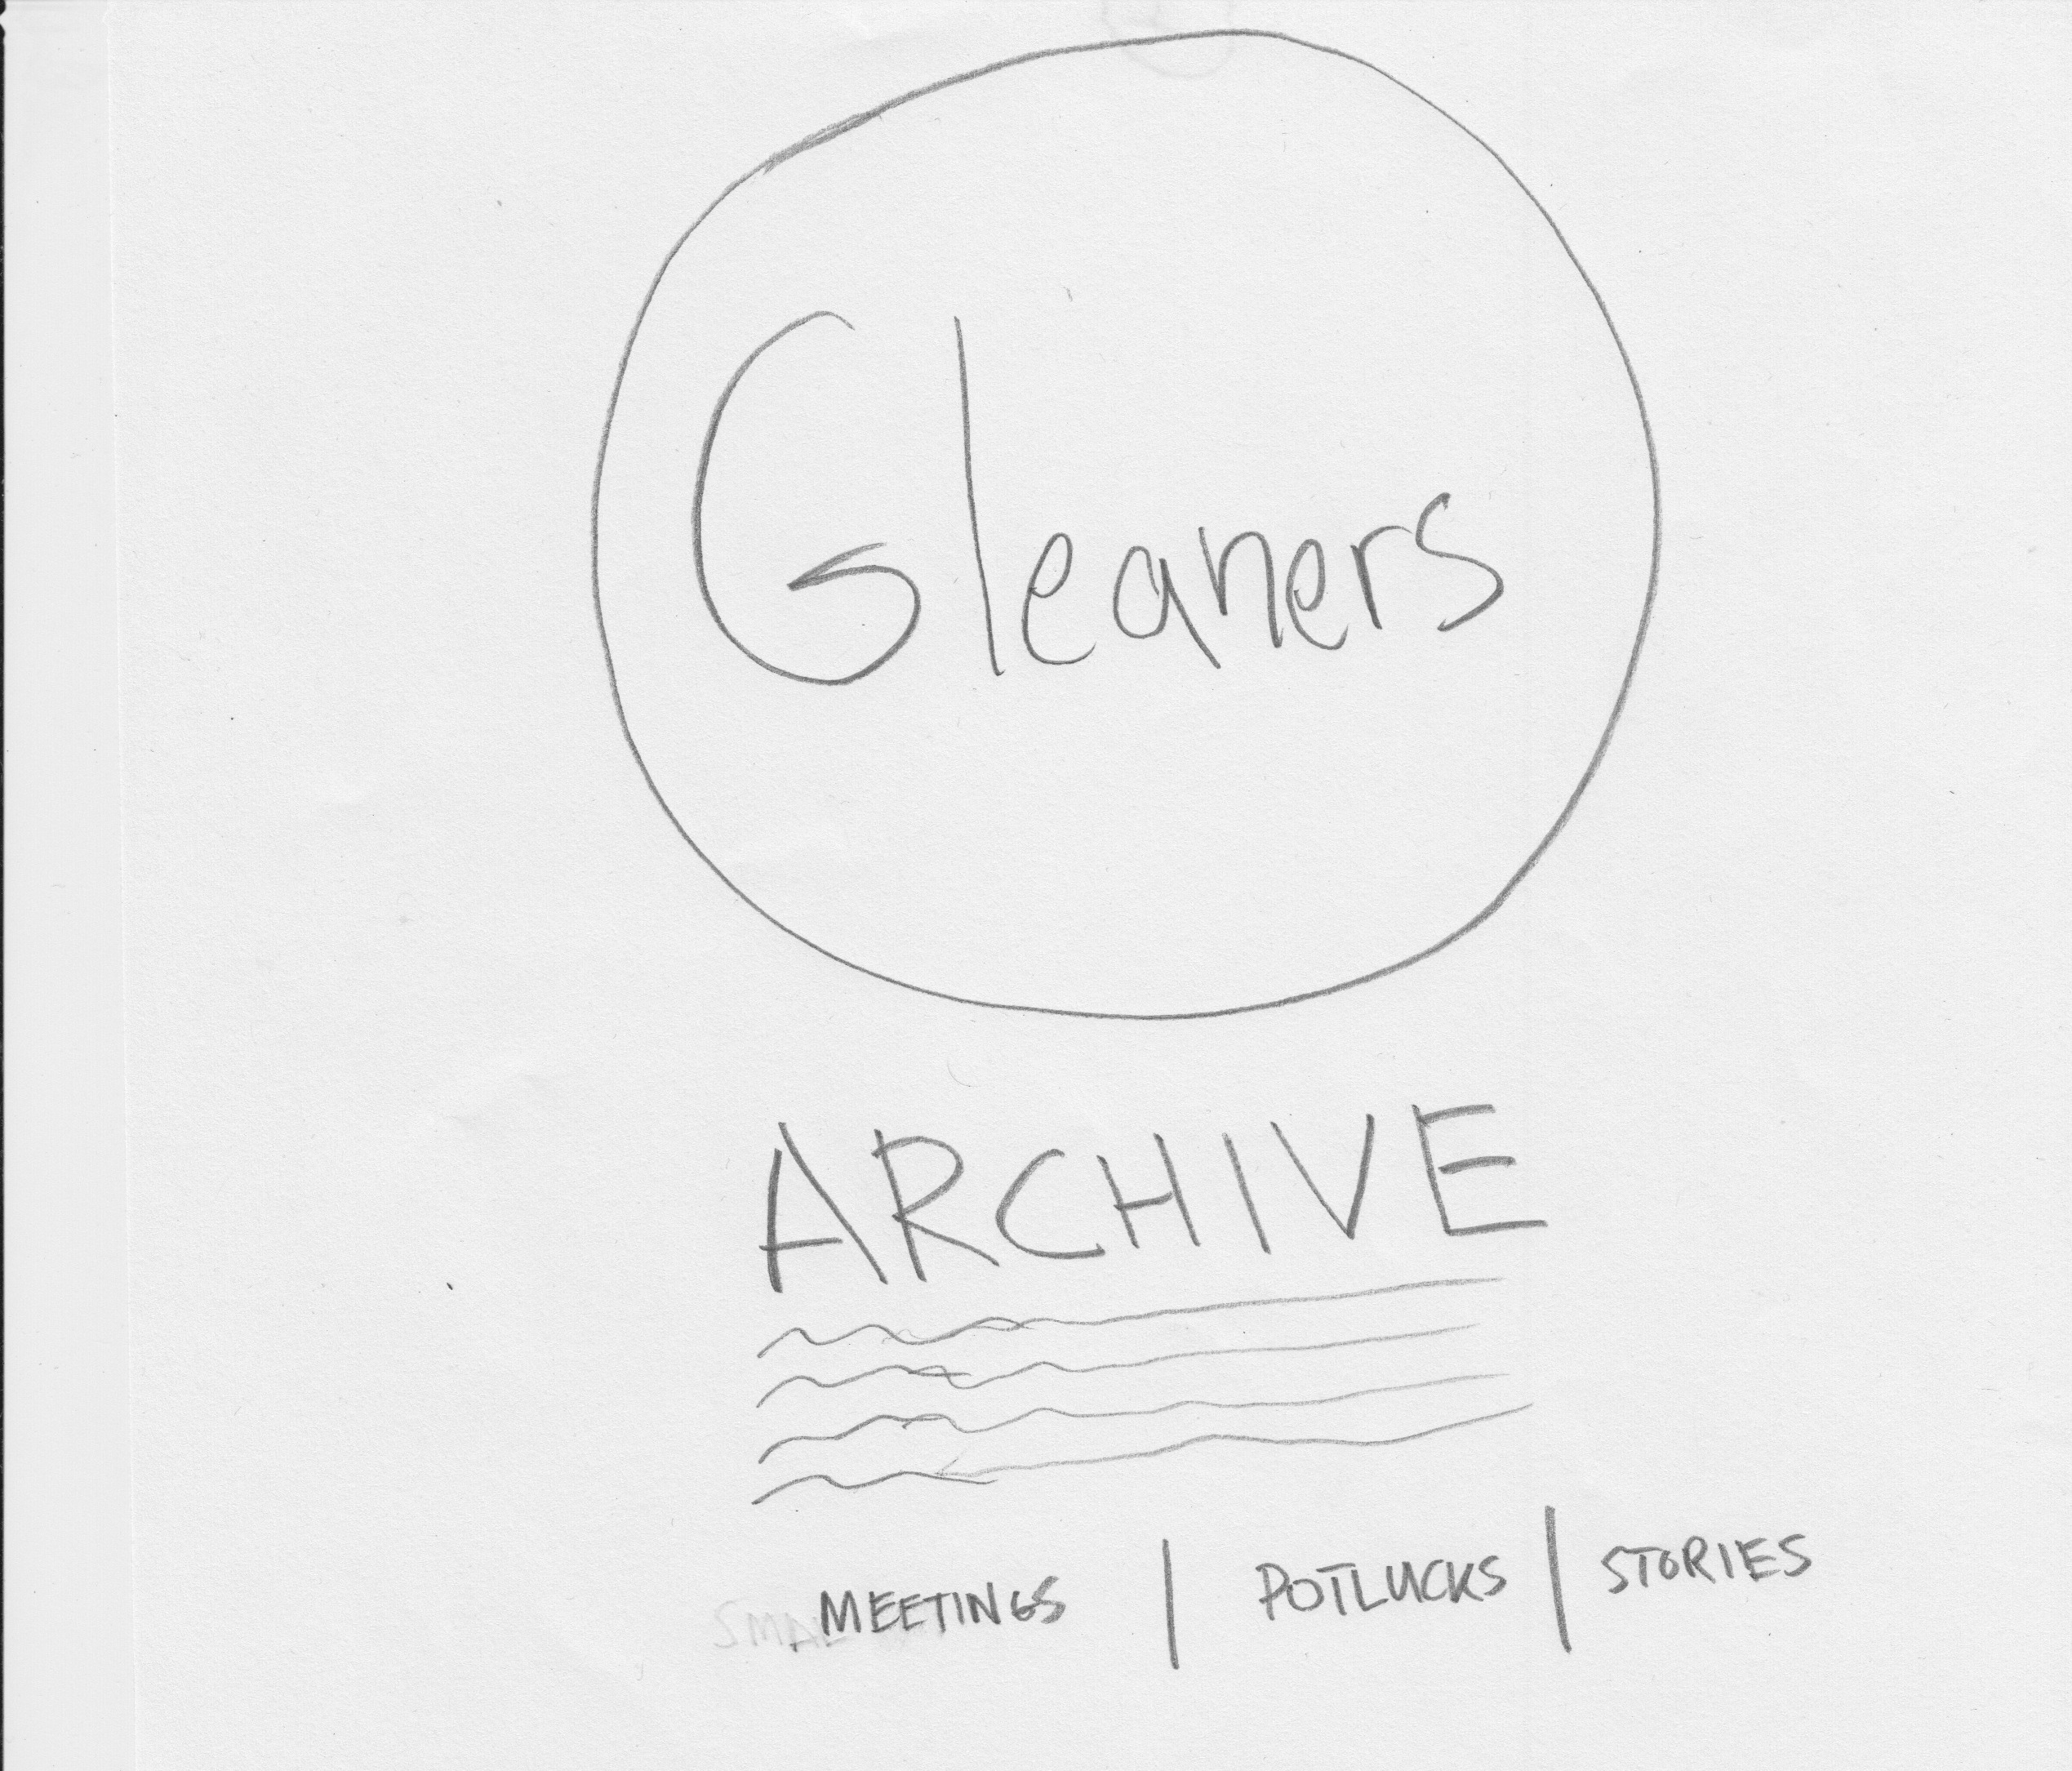 Gleaners
ARCHIVE
MEETINGS | POTLUCKS | STORIES